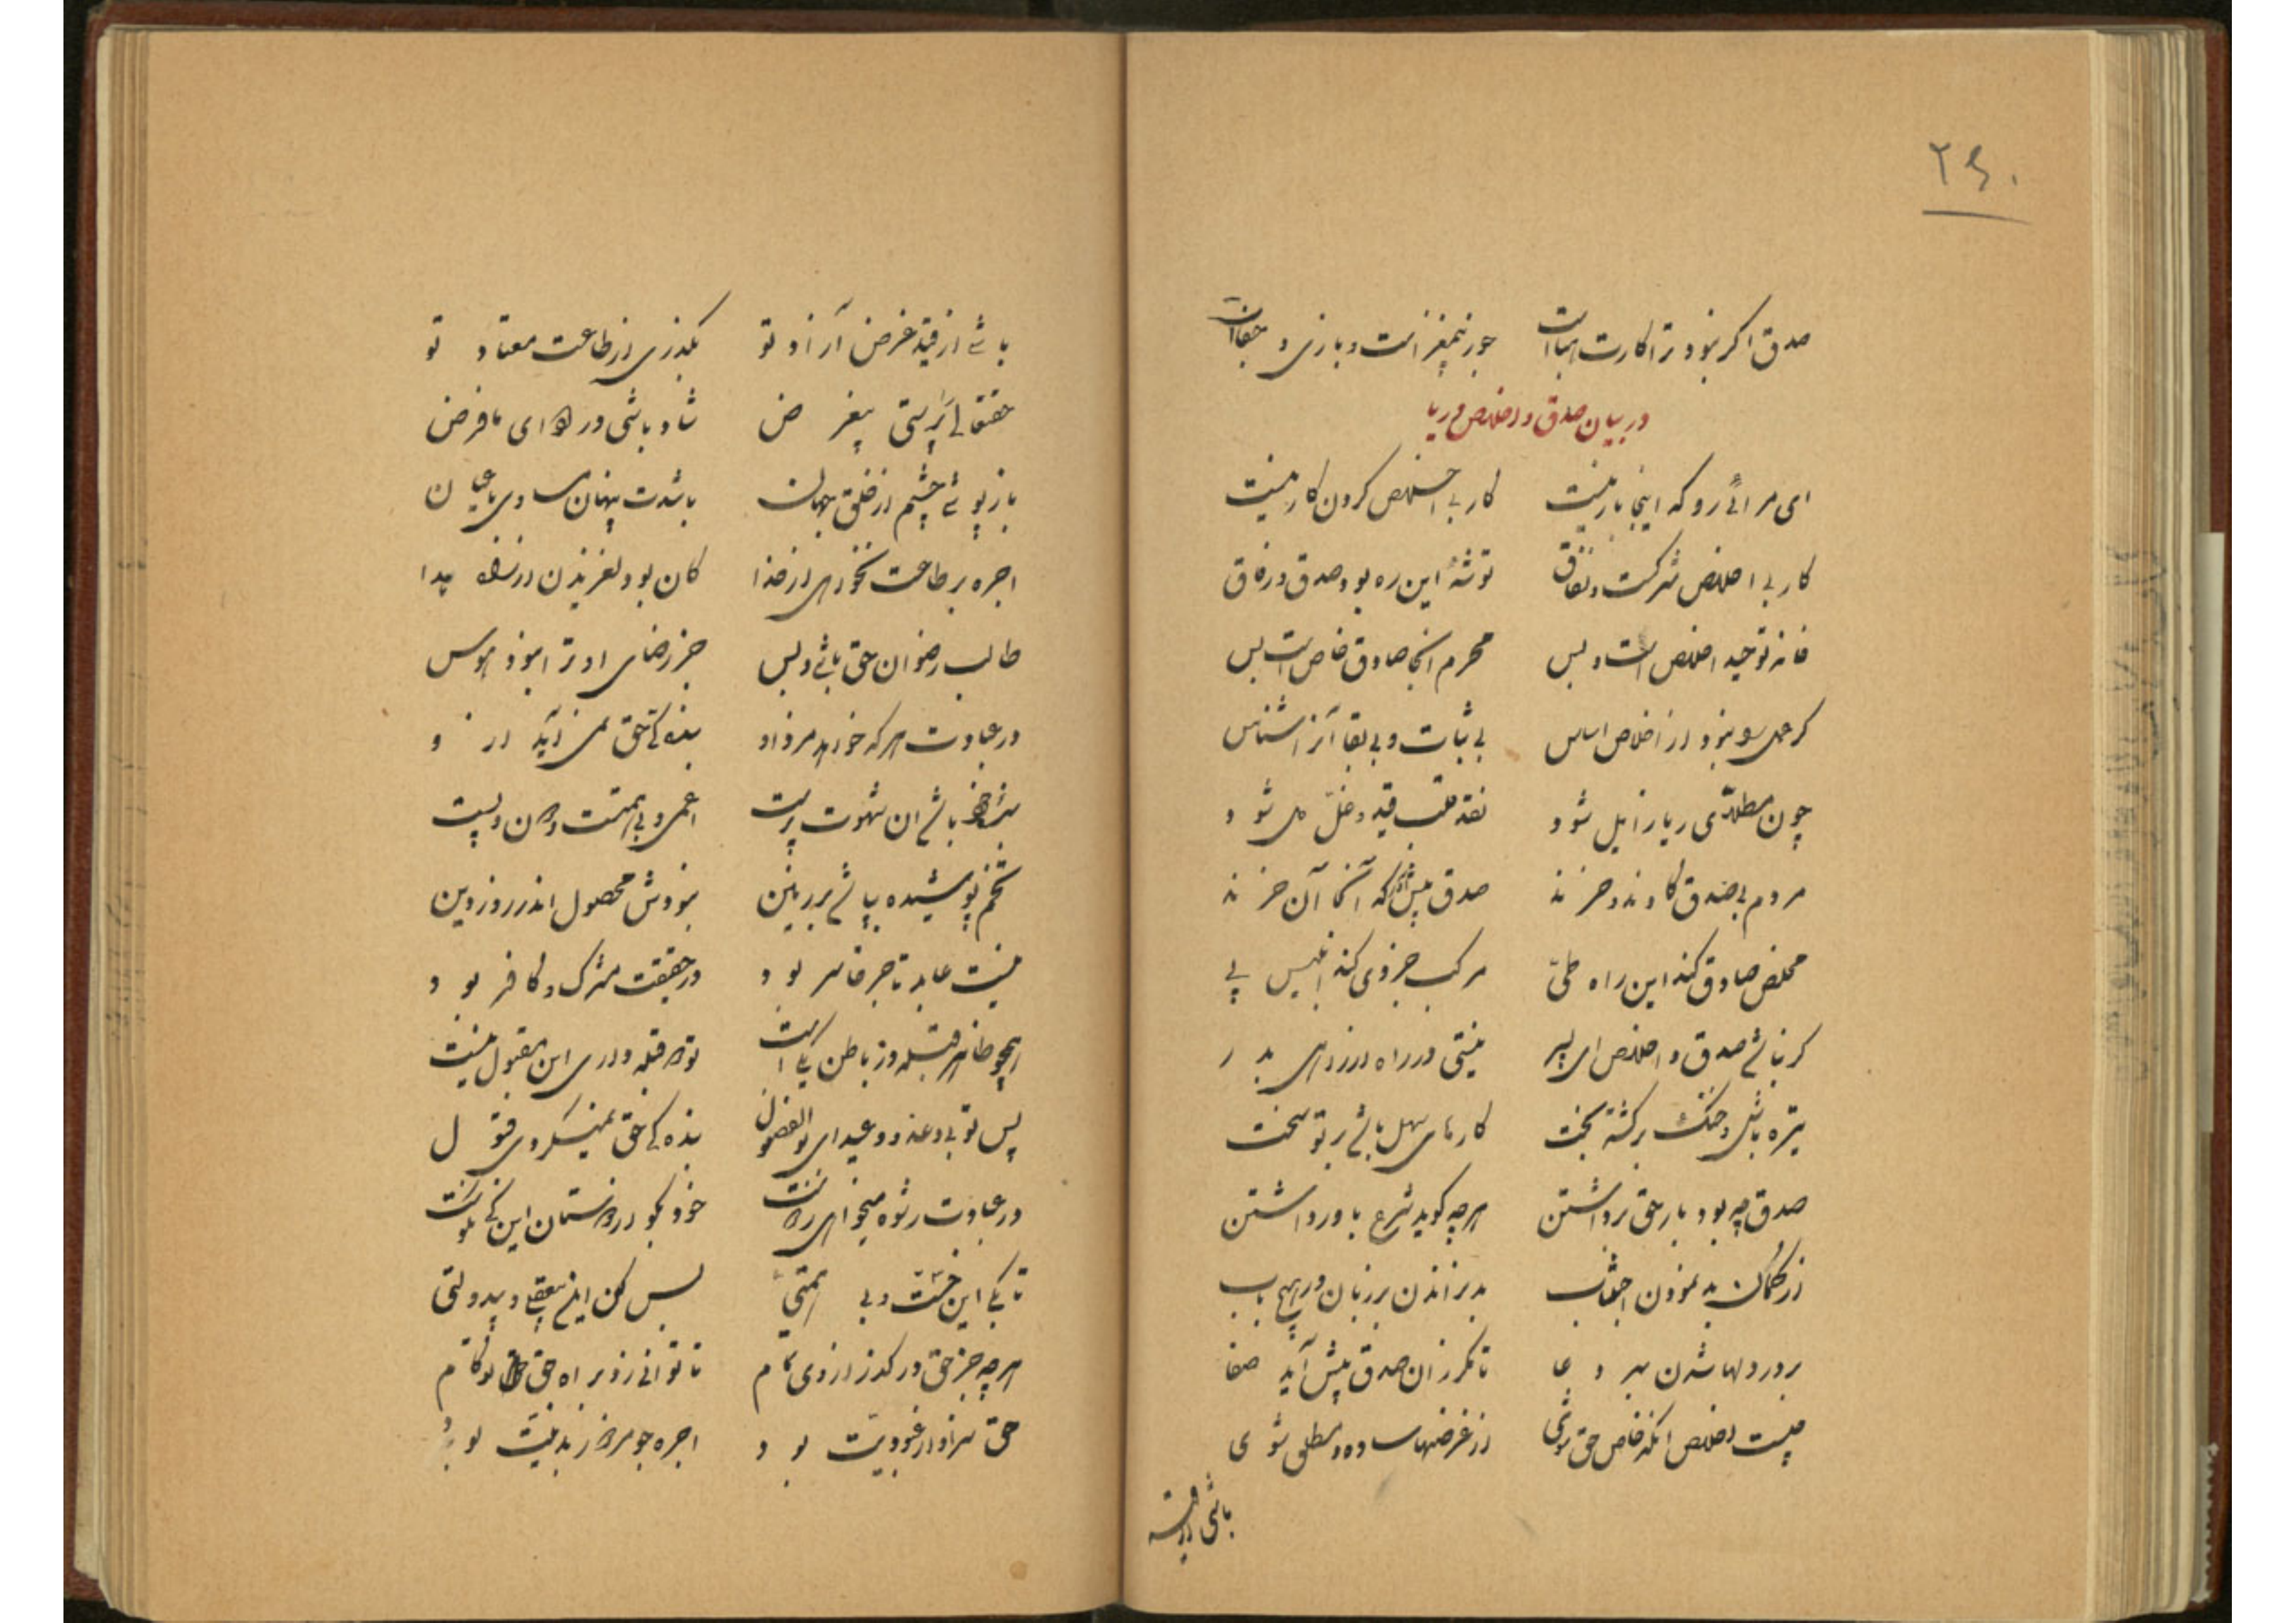 ۲۶۰
صدق اگر نبود ترا کارت هباست جوز بیمغز است و بازی و جفاست
در بیان صدق و اخلاص و ریا
ای مرائی رو که اینجا بار نیست کار بی اخلاص کردن کار نیست
کار بی اخلاص شرکست و نفاق توشهٔ این ره بود صدق و رفاق
خانه توحید اخلاص است و بس محرم آنجا صادق خاص است بس
گر عمل را نبود از اخلاص اساس بی ثبات و بی بقا آنرا شناس
چون مطلای ریا زایل شود نقد قلب قید و غل شود
مردم بی صدق گاوند و خرند صدق پیش که آنجا آن خرند
مخلص صادق کند این راه طی مرکب خر وی کند ابلیس پی
گر نباشی صدق و اخلاص ای پسر نیستی در راه در بدر
تیره باشی و خنک برگشته بخت کارهای سهل باشد بر تو سخت
صدق چه بود بار حق برداشتن هر چه گوید شرع باور داشتن
از کمال بد نمودن اجتناب بد نراندن بر زبان در هیچ باب
بر در دلها شدن بهر دعا تا مگر زان صدق پیش آید صفا
چیست اخلاص آنکه خاص حق شوی از غرضها ساده و مطلق شوی
باشی از قید
باشی از قید غرض آزاد تو بگذری از طاعت معتاد تو
حقتعالی را پرستی بیغرض شاد باشی در ادای ما فرض
باز پوشی چشم از خلق جهان باشدت پنهان مساوی با عیان
اجره بر طاعت نخواهی از خدا کان بود لغزیدن از راه هدا
طالب رضوان حق باشی و بس جز رضای او ترا نبود هوس
در عبادت هر که خواهد مزد او بندگی حق نمی آید از او
باشد آن شهوت پرست اعمی و بی همت و دون و پست
تخم پوسیده بپاشی بر زمین نبودش محصول اندر روز دین
نیست عابد تاجر خاسر بود در حقیقت مشرک و کافر بود
همچو ظاهر قبله در باطن یکی است تو دو قبله داری این مقبول نیست
پس تو بی وعد و وعید ای بوالفضول بنده گی حق نمیکردی قبول
در عبادت رشوه میخواهی خود بگو راستان این کی نکوست
تا بکی این خست و بی همتی بس کن این بیعقلی و بیدولتی
هر چه جز حق در گذر از وی تمام تا توانی زد براه حق تو گام
حق سزاوار عبودیت بود اجره جو مزدور بد نیت بود